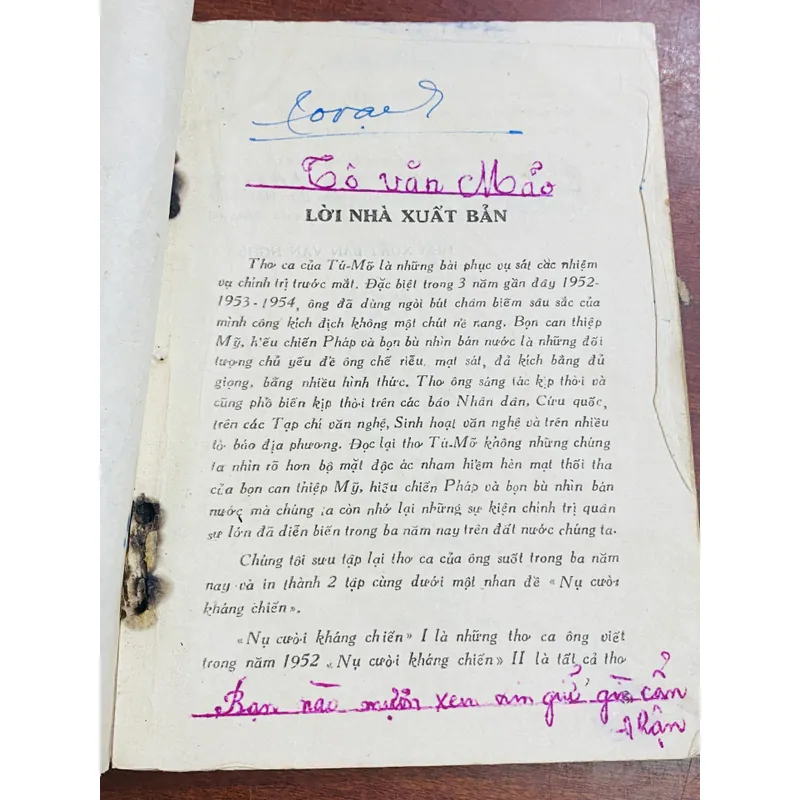 Tô văn Mảo
LỜI NHÀ XUẤT BẢN
Thơ ca của Tú-Mỡ là những bài phục vụ sát các nhiệm
vụ chính trị trước mắt. Đặc biệt trong 3 năm gần đây 1952-
1953-1954, ông đã dùng ngòi bút châm biếm sâu sắc của
mình công kích địch không một chút nể nang. Bọn can thiệp
Mỹ, hiếu chiến Pháp và bọn bù nhìn bán nước là những đối
tượng chủ yếu để ông chế riễu, mạt sát, đả kích bằng đủ
giọng, bằng nhiều hình thức. Thơ ông sáng tác kịp thời và
cũng phổ biến kịp thời trên các báo Nhân dân, Cứu quốc,
trên các Tạp chí văn nghệ, Sinh hoạt văn nghệ và trên nhiều
tờ báo địa phương. Đọc lại thơ Tú-Mỡ không những chúng
ta nhìn rõ hơn bộ mặt độc ác nham hiểm hèn mạt thối tha
của bọn can thiệp Mỹ, hiếu chiến Pháp và bọn bù nhìn bán
nước mà chúng ta còn nhớ lại những sự kiện chính trị quân
sự lớn đã diễn biến trong ba năm nay trên đất nước chúng ta.
Chúng tôi sưu tập lại thơ ca của ông suốt trong ba năm
nay và in thành 2 tập cùng dưới một nhan đề « Nụ cười
kháng chiến ».
« Nụ cười kháng chiến » I là những thơ ca ông viết
trong năm 1952 « Nụ cười kháng chiến » II là tất cả thơ
Bạn nào mượn xem xin giử gìn cẩn
thận